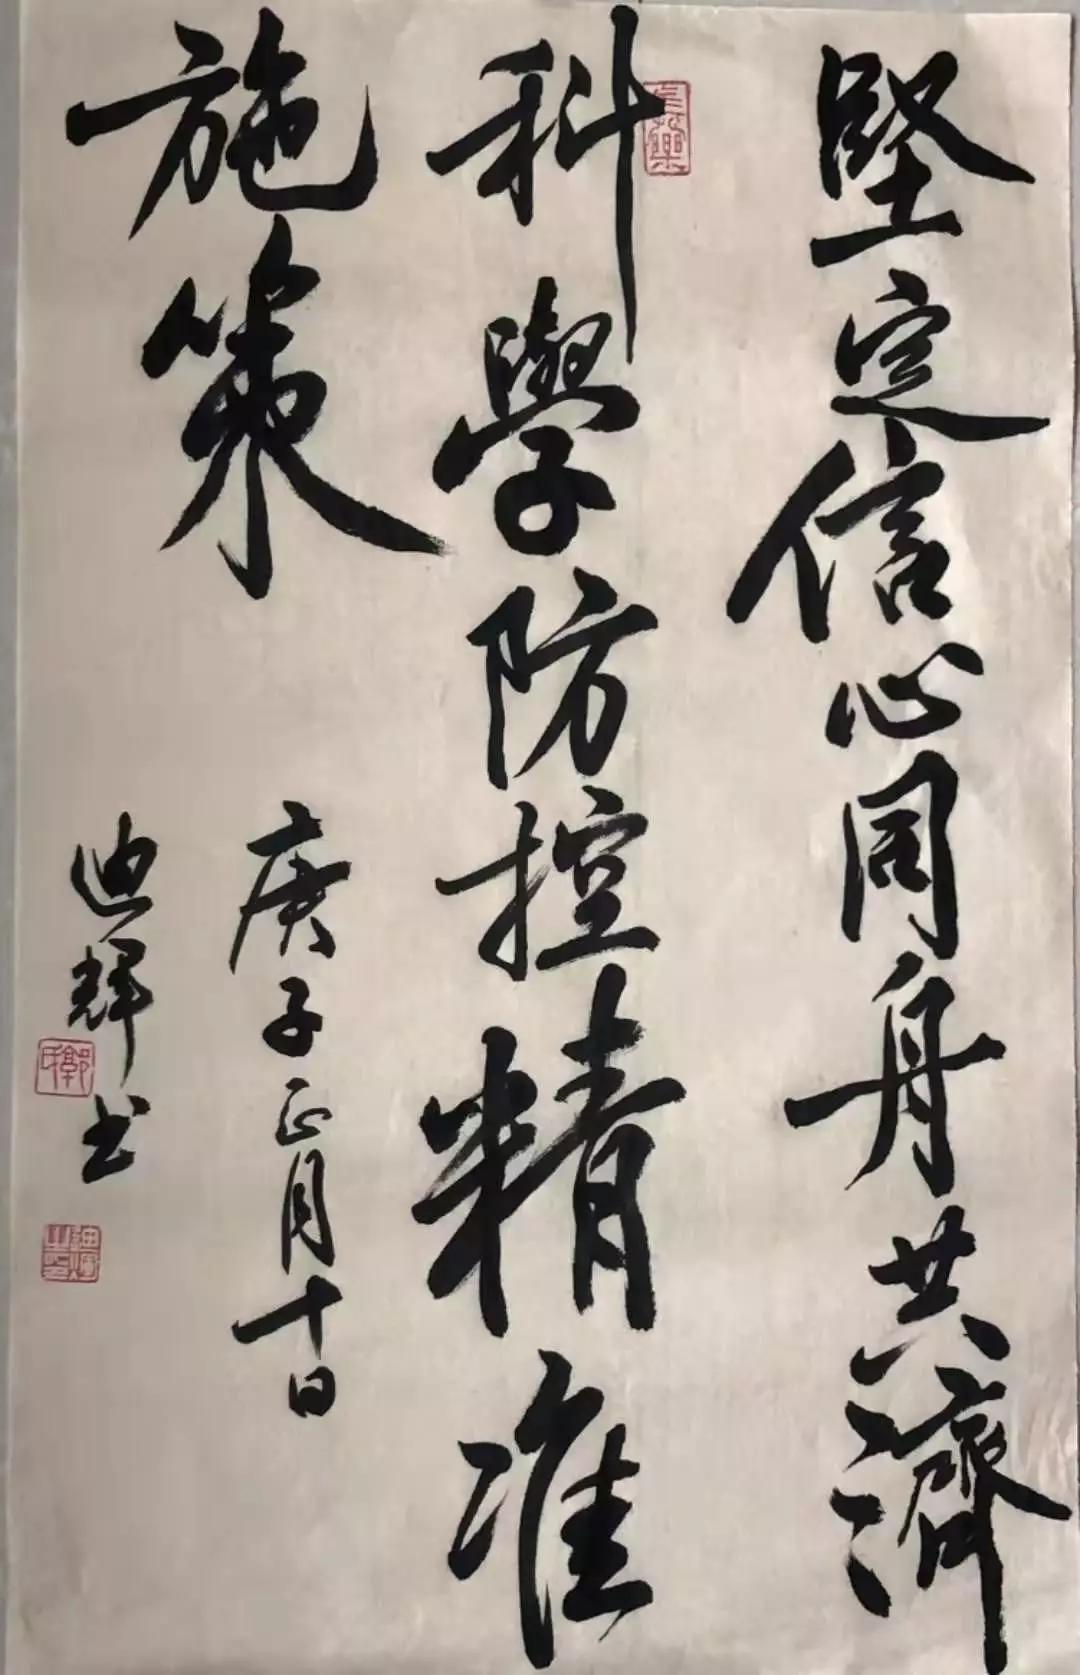 堅定信心同舟共濟
科學防控精准
施策
庚子正月十日
迪輝书
郭氏